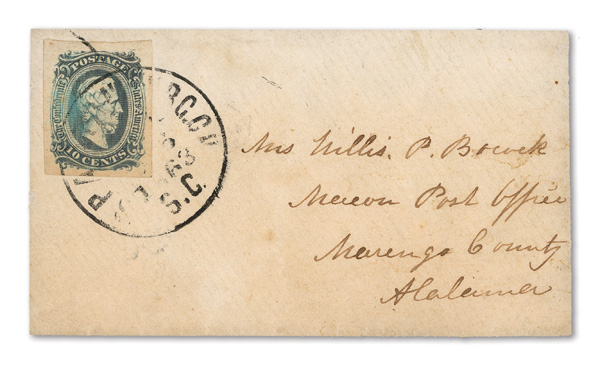 POSTAGE
The Confederate States of America
10 CENTS
63
S.C.
Mrs Willis. P. Bocock
Macon Post Office
Marengo County
Alabama